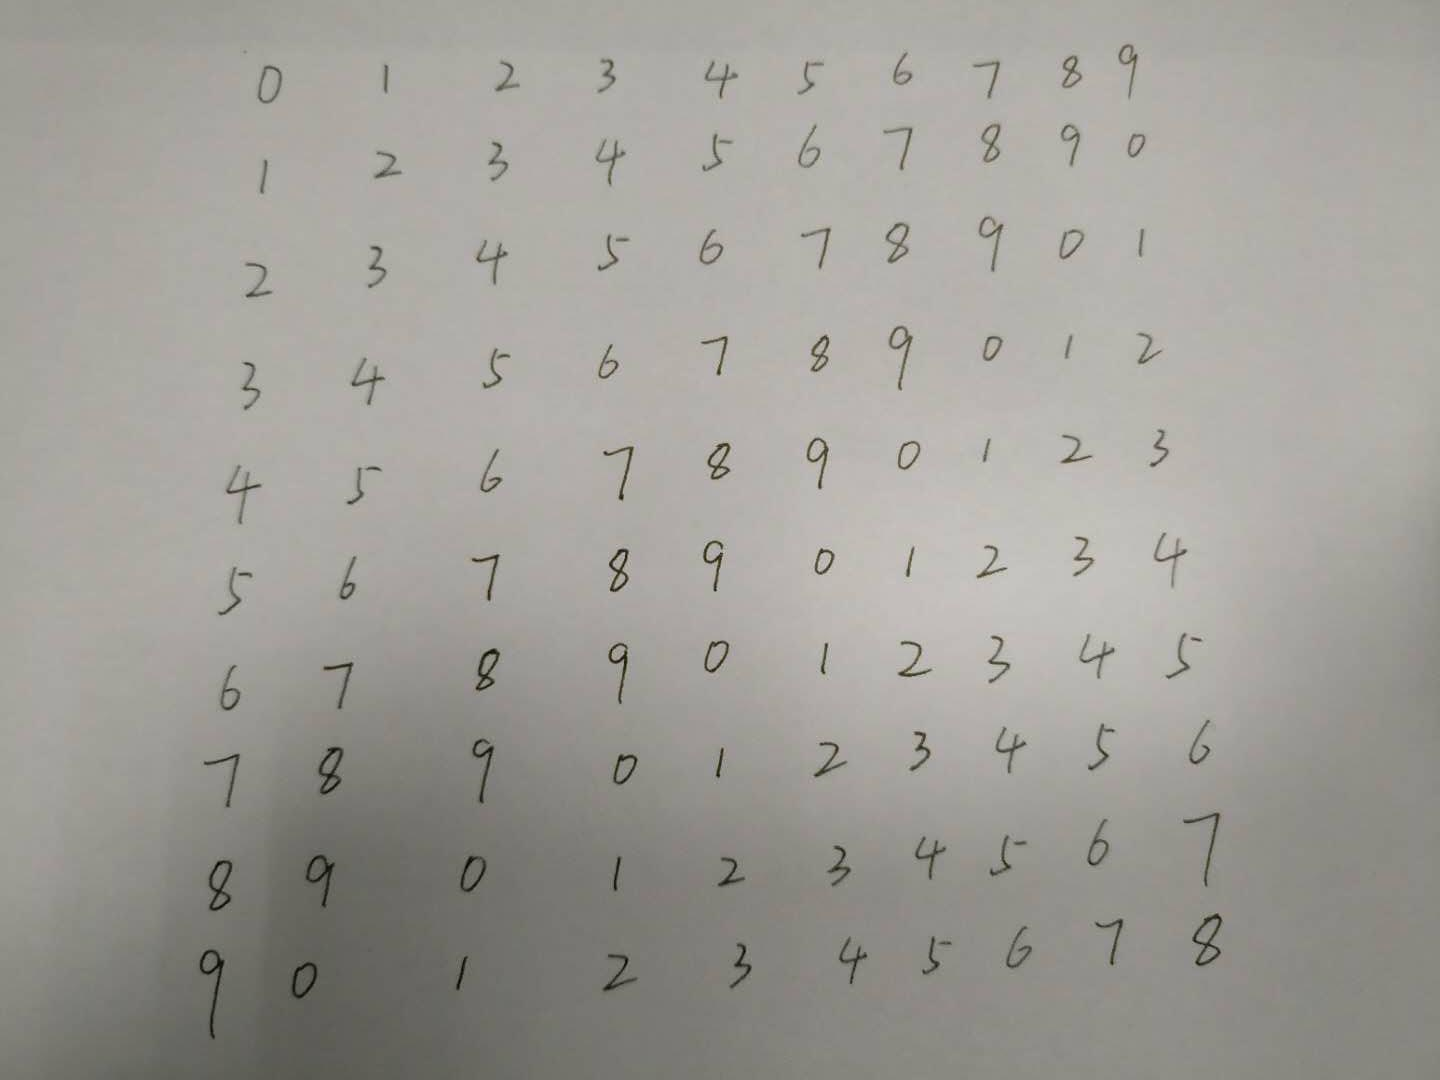 0 1 2 3 4 5 6 7 8 9
1 2 3 4 5 6 7 8 9 0
2 3 4 5 6 7 8 9 0 1
3 4 5 6 7 8 9 0 1 2
4 5 6 7 8 9 0 1 2 3
5 6 7 8 9 0 1 2 3 4
6 7 8 9 0 1 2 3 4 5
7 8 9 0 1 2 3 4 5 6
8 9 0 1 2 3 4 5 6 7
9 0 1 2 3 4 5 6 7 8